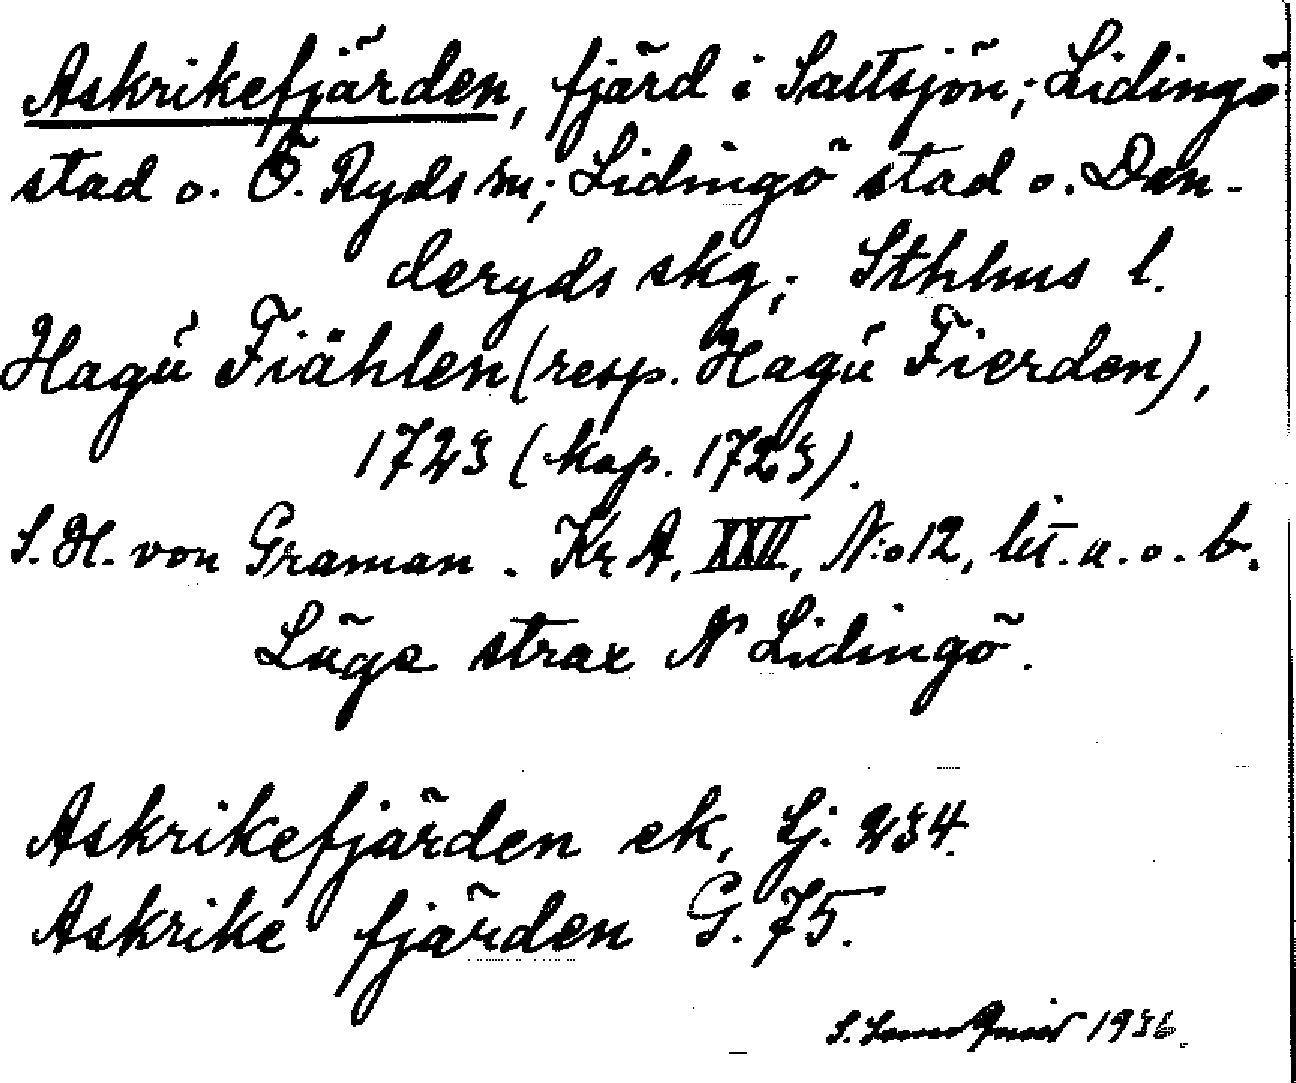 Askrikefjärden, fjärd i Saltsjön; Lidingö
stad o. Ö. Ryds sn; Lidingö stad o. Dan-
deryds skg; Sthlms l.
Hagú Fiählen (resp. Hagú Fierden),
1723 (kop. 1723).
S. H. von Graman. Kr A, XXII, N:o 12, lit. a. o. b.
Läge strax N Lidingö.
Askrikefjärden ek. Lj. 234.
Askrike fjärden G. 75.
S. 1936.